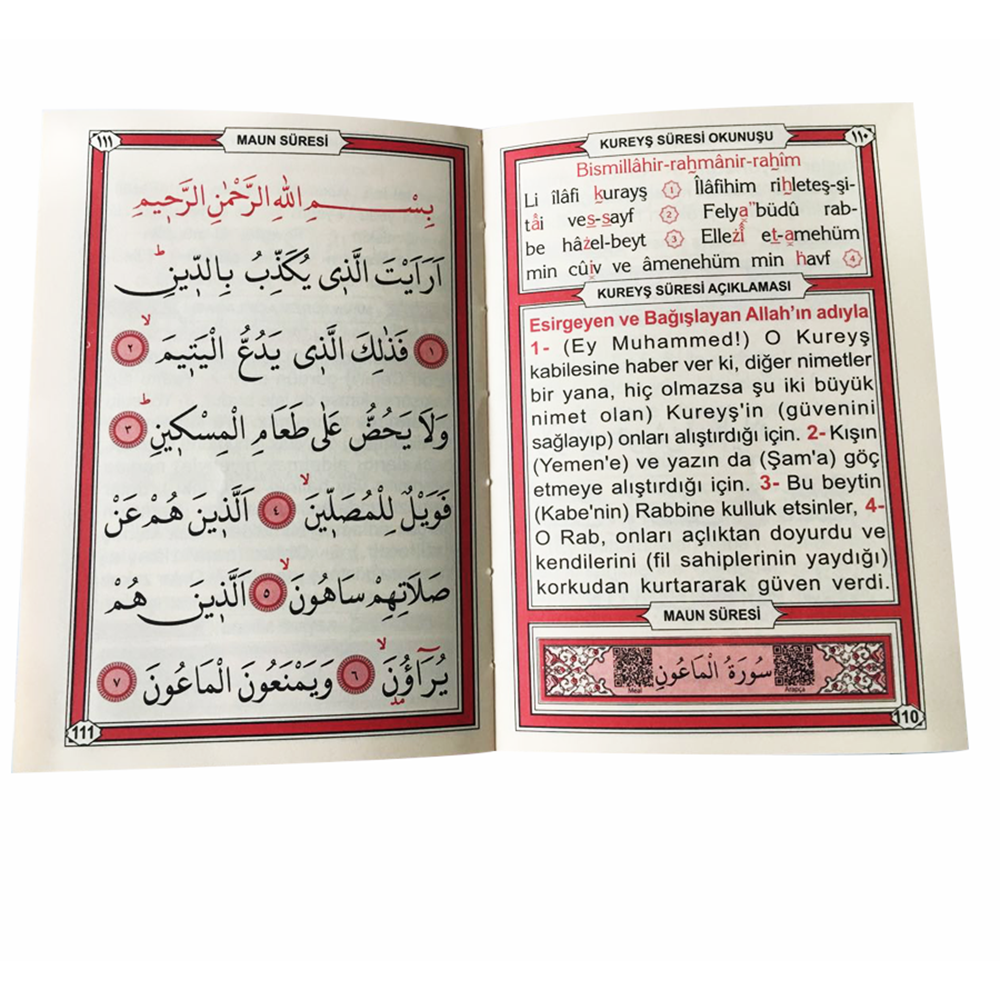 ١١٠
KUREYŞ SÛRESİ OKUNUŞU
Bismillâhir-raḥmânir-raḥîm
Li îlâfi ḳurayş ① Îlâfihim riḥleteş-şi-
tâi ves-sayf ② Felya"büdû rab-
be hâzel-beyt ③ Ellezî et-amehüm
min cûiv ve âmenehüm min ḣavf ④
KUREYŞ SÛRESİ AÇIKLAMASI
Esirgeyen ve Bağışlayan Allah'ın adıyla
1- (Ey Muhammed!) O Kureyş
kabilesine haber ver ki, diğer nimetler
bir yana, hiç olmazsa şu iki büyük
nimet olan) Kureyş'in (güvenini
sağlayıp) onları alıştırdığı için. 2- Kışın
(Yemen'e) ve yazın da (Şam'a) göç
etmeye alıştırdığı için. 3- Bu beytin
(Kabe'nin) Rabbine kulluk etsinler, 4-
O Rab, onları açlıktan doyurdu ve
kendilerini (fil sahiplerinin yaydığı)
korkudan kurtararak güven verdi.
MAUN SÛRESİ
سُورَةُ الْمَاعُونِ
Meal
Arapça
110
١١١
MAUN SÛRESİ
بِسْمِ اللهِ الرَّحْمٰنِ الرَّحٖيمِ
اَرَاَيْتَ الَّذٖى يُكَذِّبُ بِالدّٖينِ ؕ
﴿١﴾ فَذٰلِكَ الَّذٖى يَدُعُّ الْيَتٖيمَ ۙ ﴿٢﴾
وَلَا يَحُضُّ عَلٰى طَعَامِ الْمِسْكٖينِ ؕ ﴿٣﴾
فَوَيْلٌ لِلْمُصَلّٖينَ ۙ ﴿٤﴾ اَلَّذٖينَ هُمْ عَنْ
صَلَاتِهِمْ سَاهُونَ ۙ ﴿٥﴾ اَلَّذٖينَ هُمْ
يُرَٓاؤُنَ ۙ ﴿٦﴾ وَيَمْنَعُونَ الْمَاعُونَ ﴿٧﴾
111